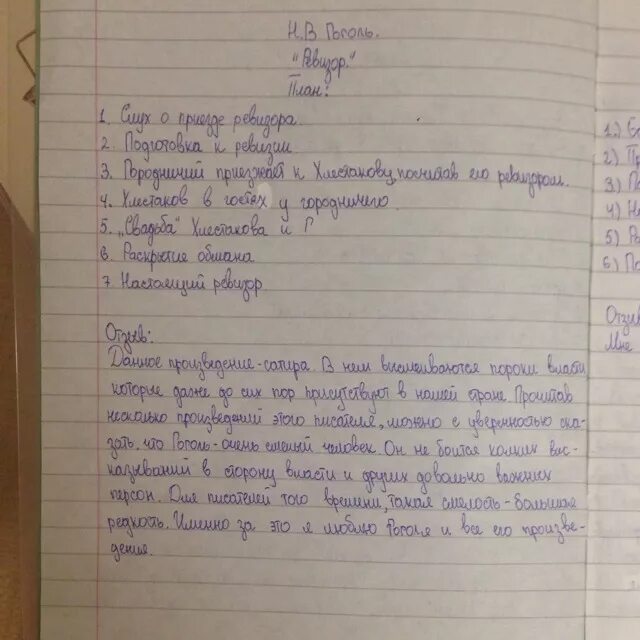 Н.В Гоголь.
"Ревизор."
План:
1. Слух о приезде ревизора.
2. Подготовка к ревизии
3. Городничий приезжает к Хлестакову, посчитав его ревизором.
4. Хлестаков в гостях у городничего.
5. "Свадьба" Хлестакова и Г
6. Раскрытие обмана
7. Настоящий ревизор
Отзыв:
Данное произведение-сатира. В нем высмеиваются пороки власти
которые даже до сих пор присутствуют в нашей стране. Прочитав
несколько произведений этого писателя, можно с уверенностью ска-
зать, что Гоголь-очень смелый человек. Он не боится колких выс-
казываний в сторону власти и других довольно важных
персон. Для писателей того времени, такая смелость-большая
редкость. Именно за это я люблю Гоголя и все его произве-
дения.
1.)
2)
3)
4)
5)
6)
Отзыв
Мне